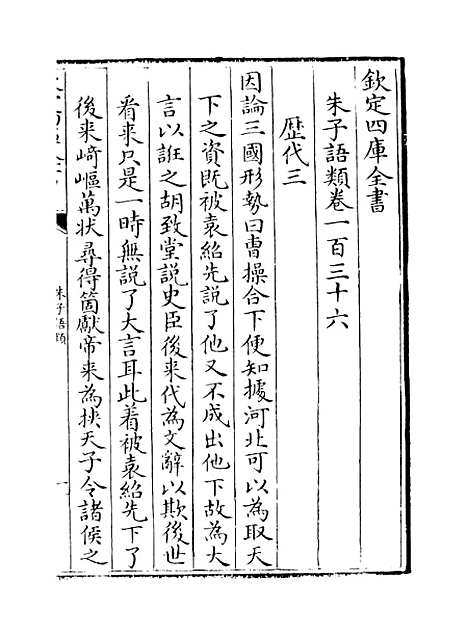 欽定四庫全書
朱子語類卷一百三十六
歷代三
因論三國形勢曰曹操合下便知據河北可以為取天
下之資既被袁紹先說了他又不成出他下故為大
言以誑之胡致堂說史臣後来代為文辭以欺後世
看来只是一時無說了大言耳此着被袁紹先下了
後来﨑嶇萬状尋得箇獻帝来為挾天子令諸侯之
朱子語類
一